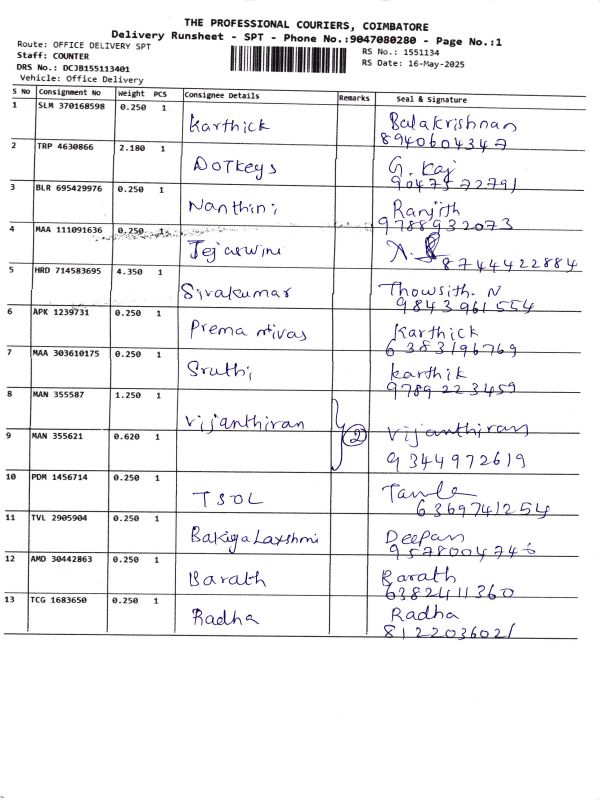 THE PROFESSIONAL COURIERS, COIMBATORE
Delivery Runsheet - SPT - Phone No.:9047080280 - Page No.:1
Route: OFFICE DELIVERY SPT
Staff: COUNTER
DRS No.: DCJB155113401
Vehicle: Office Delivery
RS No.: 1551134
RS Date: 16-May-2025
S No Consignment No Weight PCS Consignee Details Remarks Seal & Signature
1 SLM 370168598 0.250 1 Karthick Balakrishnan
8940604347
2 TRP 4630866 2.180 1 DOTKeys G. Raj
9047572791
3 BLR 695429976 0.250 1 Nanthini Ranjith
9788932073
4 MAA 111091636 0.250 1 Tejaswini
8744422884
5 HRD 714583695 4.350 1 Sivakumar Thowsith. N
9843961554
6 APK 1239731 0.250 1 Prema Karthick
6383196769
7 MAA 303610175 0.250 1 Sruthi Karthik
9789223459
8 MAN 355587 1.250 1 Vijanthiran Vijanthiran
9 MAN 355621 0.620 1 2 9344972619
10 PDM 1456714 0.250 1 TSOL
6369741254
11 TVL 2905904 0.250 1 BakiyaLaxshmi Deepan
9578004746
12 AMD 30442863 0.250 1 Barath Barath
6382411360
13 TCG 1683650 0.250 1 Radha Radha
8122036021